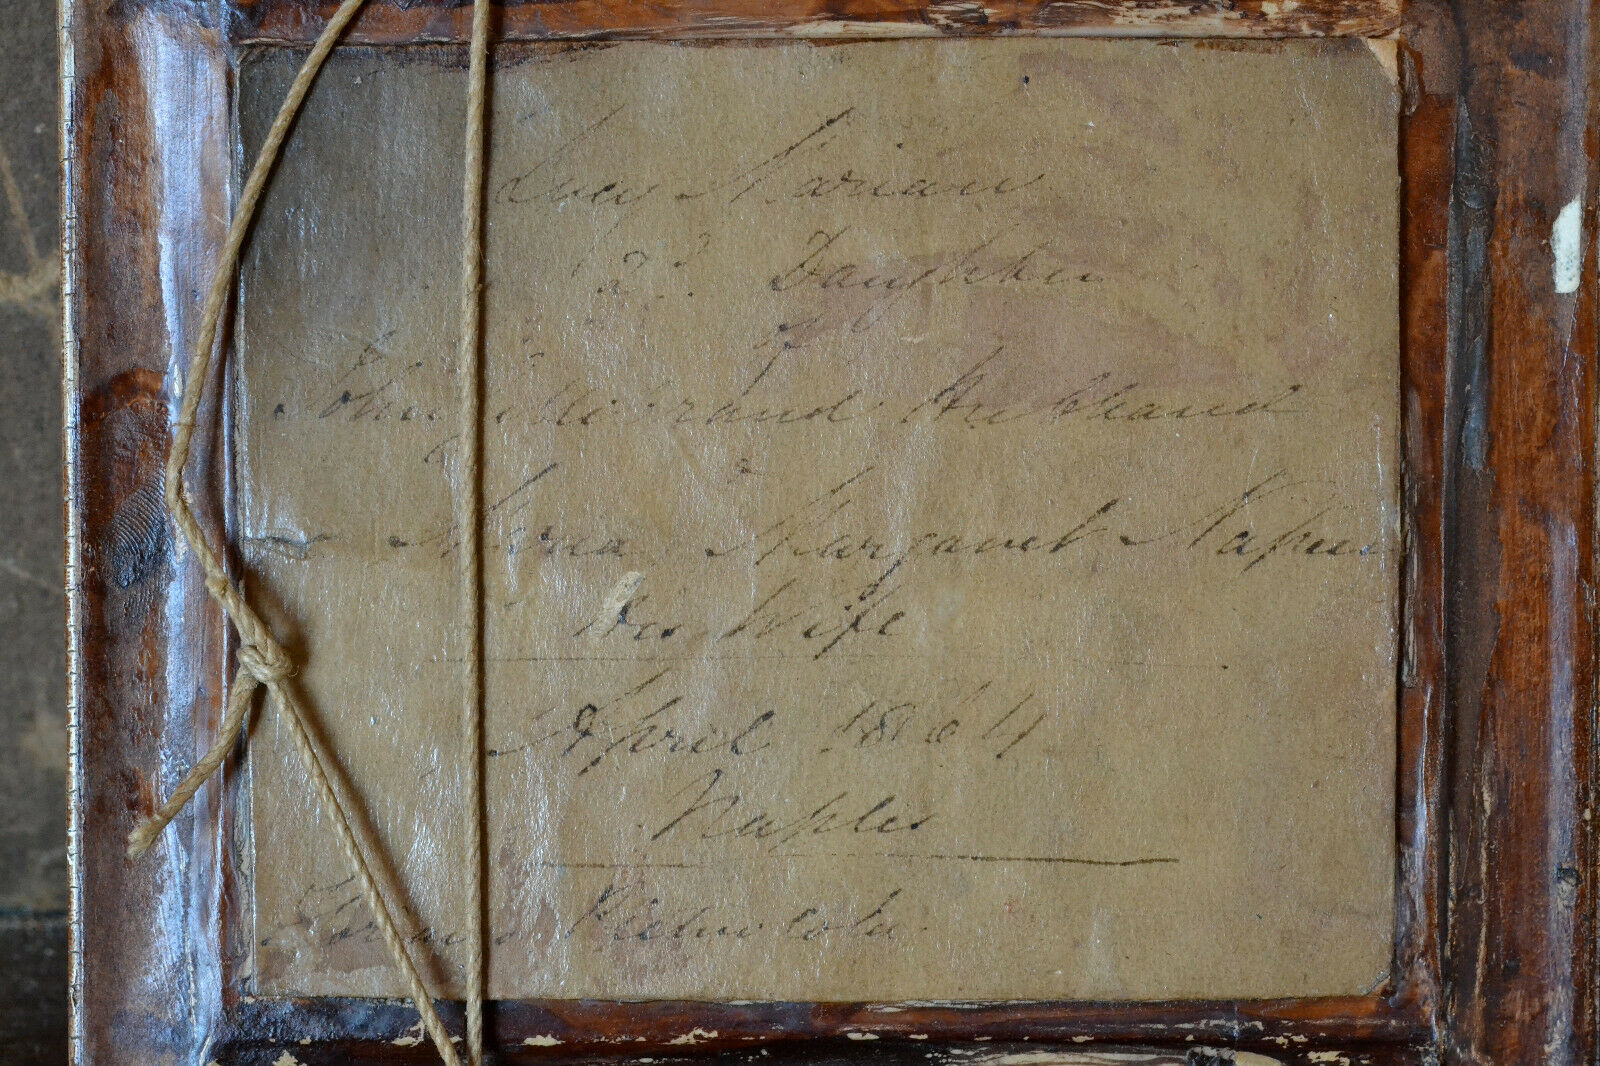 Lucy Marian
2d. Daughter
of
John Hubband
Maria Margaret Napier
His Wife
April 1864
Naples